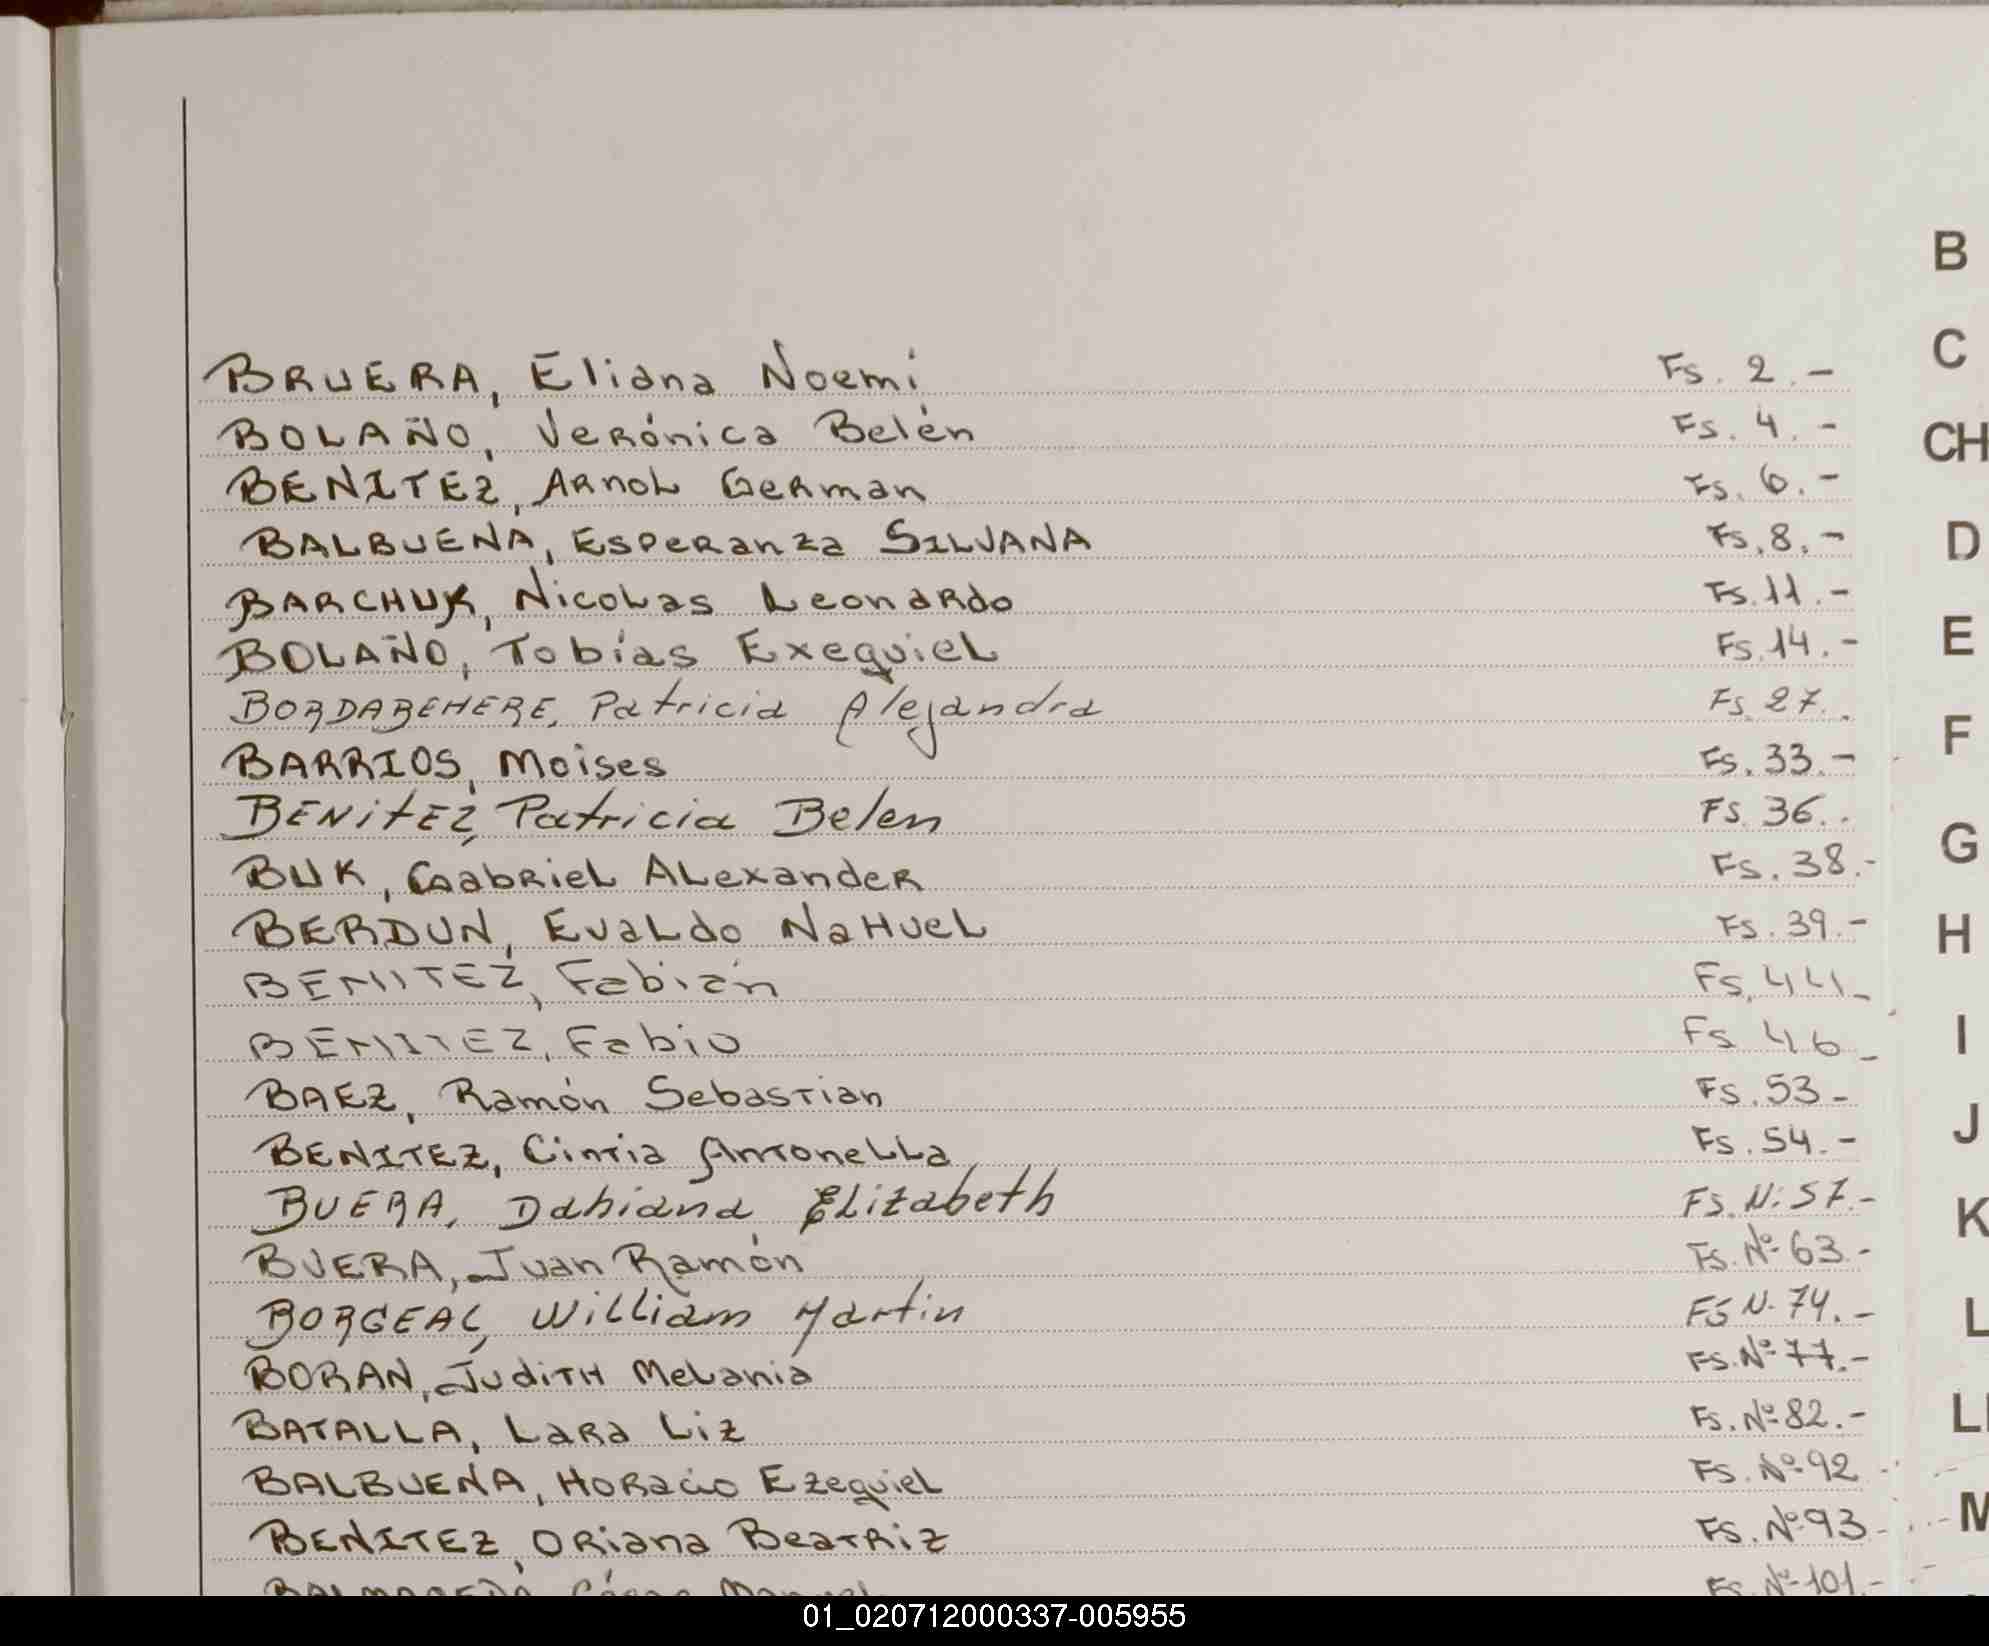 BRUERA, Eliana Noemí Fs. 2.-
BOLAÑO, Verónica Belén Fs. 4.-
BENITEZ, ARNOL GERman Fs. 6.-
BALBUENA, ESPERanza SILVANA Fs. 8.-
BARCHUK, NicoLas LeonaRdo Fs. 11.-
BOLAÑO, Tobías ExequieL Fs. 14.-
BORDABEHERE, Patricia Alejandra Fs. 27..
BARRIOS, Moises Fs. 33.-
BENitEZ, Patricia Belen FS. 36..
BUK, GabRieL ALexandeR Fs. 38.-
BERDUN, EvaLdo NaHueL Fs. 39.-
BENITEZ, Fabián Fs. 44-
BENITEZ, Fabio Fs 46-
BAEZ, Ramón Sebastian Fs. 53-
BENITEZ, Cintia AntoneLLa Fs. 54.-
BUERA, Dahiana Elizabeth Fs. N: 57.-
BUERA, Juan Ramón Fs. Nº 63.-
BORGEAL, William Martin FS N. 74.-
BORAN, JudiTH MeLania FS. Nº 77.-
BATALLA, LaRa Liz Fs. Nº 82.-
BALBUENA, HORacio EzequieL FS. Nº 92
BENITEZ, ORiana BeaTRiz FS. Nº 93-
Fs. Nº 101.-
B
C
CH
D
E
F
G
H
I
J
K
L
LL
M
01_020712000337-005955